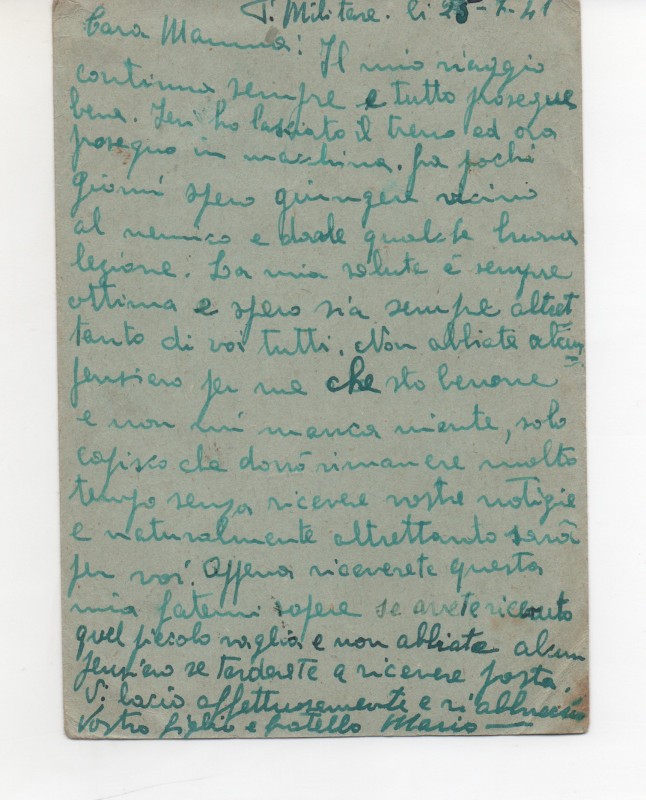 P. Militare. li 25-7-41
Cara Mamma: Il mio viaggio
continua sempre e tutto prosegue
bene. Ieri ho lasciato il treno ed ora
prosegno in macchina. fra pochi
giorni spero giungere vicino
al nemico e darle qualche buona
legione. La mia salute è sempre
ottima e spero sia sempre altret
tanto di voi tutti. Non abbiate alcun
pensiero per me che sto benone
e non mi manca niente, solo
capisco che dovrò rimanere molto
tempo senza ricevere vostre notizie
e naturalmente altrettanto sarà
per voi. Appena riceverete questa
mia fatemi sapere se avete ricevuto
quel piccolo vaglia e non abbiate alcun
pensiero se tarderete a ricevere posta.
Vi bacio affettuosamente e vi abbraccio
Vostro figlio e fratello Mario